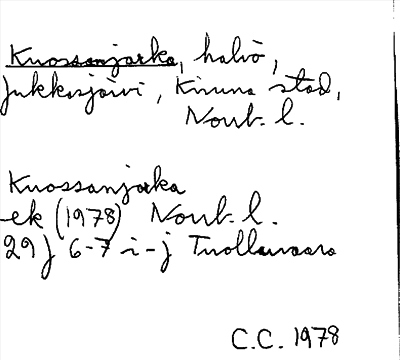 Kuossanjarka, halvö,
Jukkasjärvi, Kiruna stad,
Norrb. l.
Kuossanjarka
ek (1978) Norrb. l.
29J 6-7 i-j Tuolluvaara
C.C. 1978